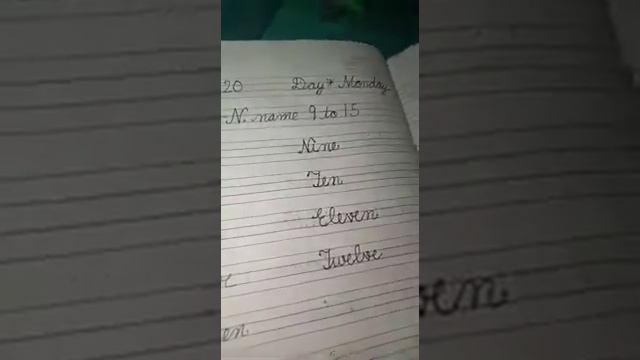 20 Day* Monday
N. name 9 to 15
Nine
Ten
Eleven
Twelve